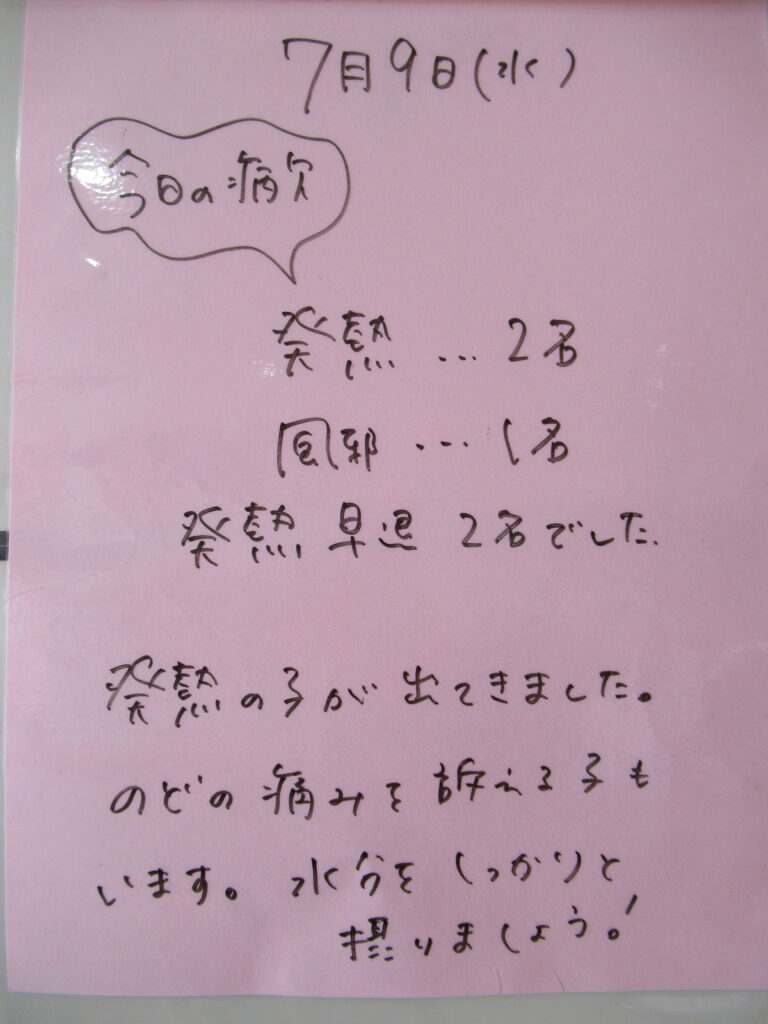 7月9日(水)
今日の病欠
発熱 … 2名
風邪 … 1名
発熱 早退 2名でした.
発熱の子が 出てきました。
のどの 痛みを 訴える子も
います。 水分を しっかりと
摂りましょう!